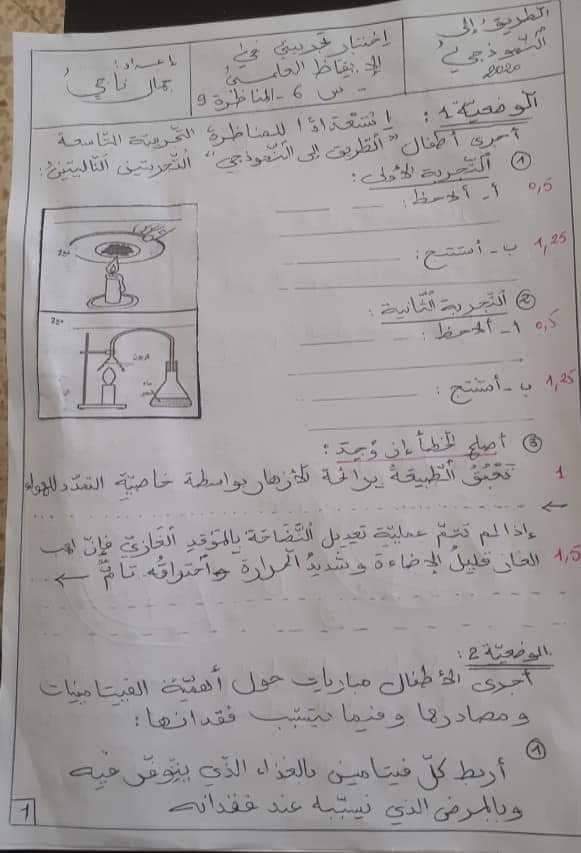 الطريق إلى
النّموذجي
2020
اختبار تجريبي في
الإيقاظ العلمي
س 6 - المناظرة 9
إعداد:
جمال ناجي
الوضعيّة 1: إستعدادًا للمناظرة التجريبيّة التّاسعة
أجرى أطفال "الطّريق إلى النّموذجي" التّجربتين التّاليتين:
① التّجربة الأولى:
أ - ألاحظ: 0,5
ب - أستنتج: 1,25
② التّجربة الثّانية:
أ - ألاحظ: 0,5
ب - أستنتج: 1,25
③ أصلح الخطأ إن وُجد:
تَعْبَقُ الطّبيعةُ برائحة الأزهار بواسطة خاصيّة التمدّد للهواء 1
إذا لم تتمّ عمليّة تعديل النّضّاخة بالموقد الغازيّ فإنّ لهب
الغاز قليلُ الإضاءة و شديدُ الحرارة و احتراقُه تامٌّ 1,5
الوضعيّة 2:
أجرى الأطفال مباريات حول أهميّة الفيتامينات
و مصادرها و فيما يتسبّب فقدانها:
① أربط كلّ فيتامين بالغذاء الّذي يتوفّر فيه
و بالمرض الذي يسبّبه عند فقدانه
1